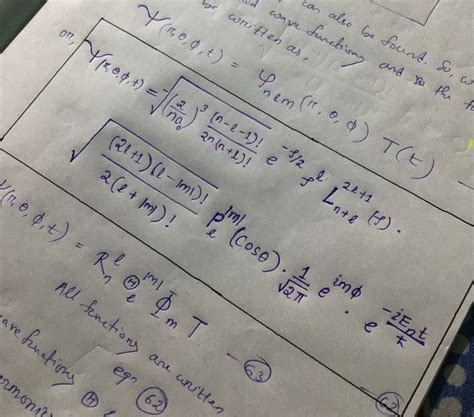 can also be found. So, w
wave functions and the
be written as,
Ψ(r,θ,φ,t) = φ_nlm (r,θ,φ) T(t)
or,
Ψ(r,θ,φ,t) = -√((2/na₀)³ (n-l-1)!/2n(n+l)!) e^(-ρ/2) ρ^l L_(n+l)^(2l+1) (ρ).
√((2l+1)(l-|m|)!/2(l+|m|)!) P_l^|m| (cosθ). 1/√2π e^(imφ). e^(-iE_n t/ħ)
Ψ(r,θ,φ,t) = R_n^l Θ_l^|m| Φ_m T — 63
All functions are written
eqn 62
wave functions